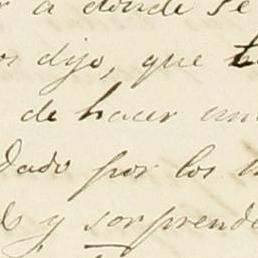 a donde se
dijo, que
de hacer
dado por los
y sorprende